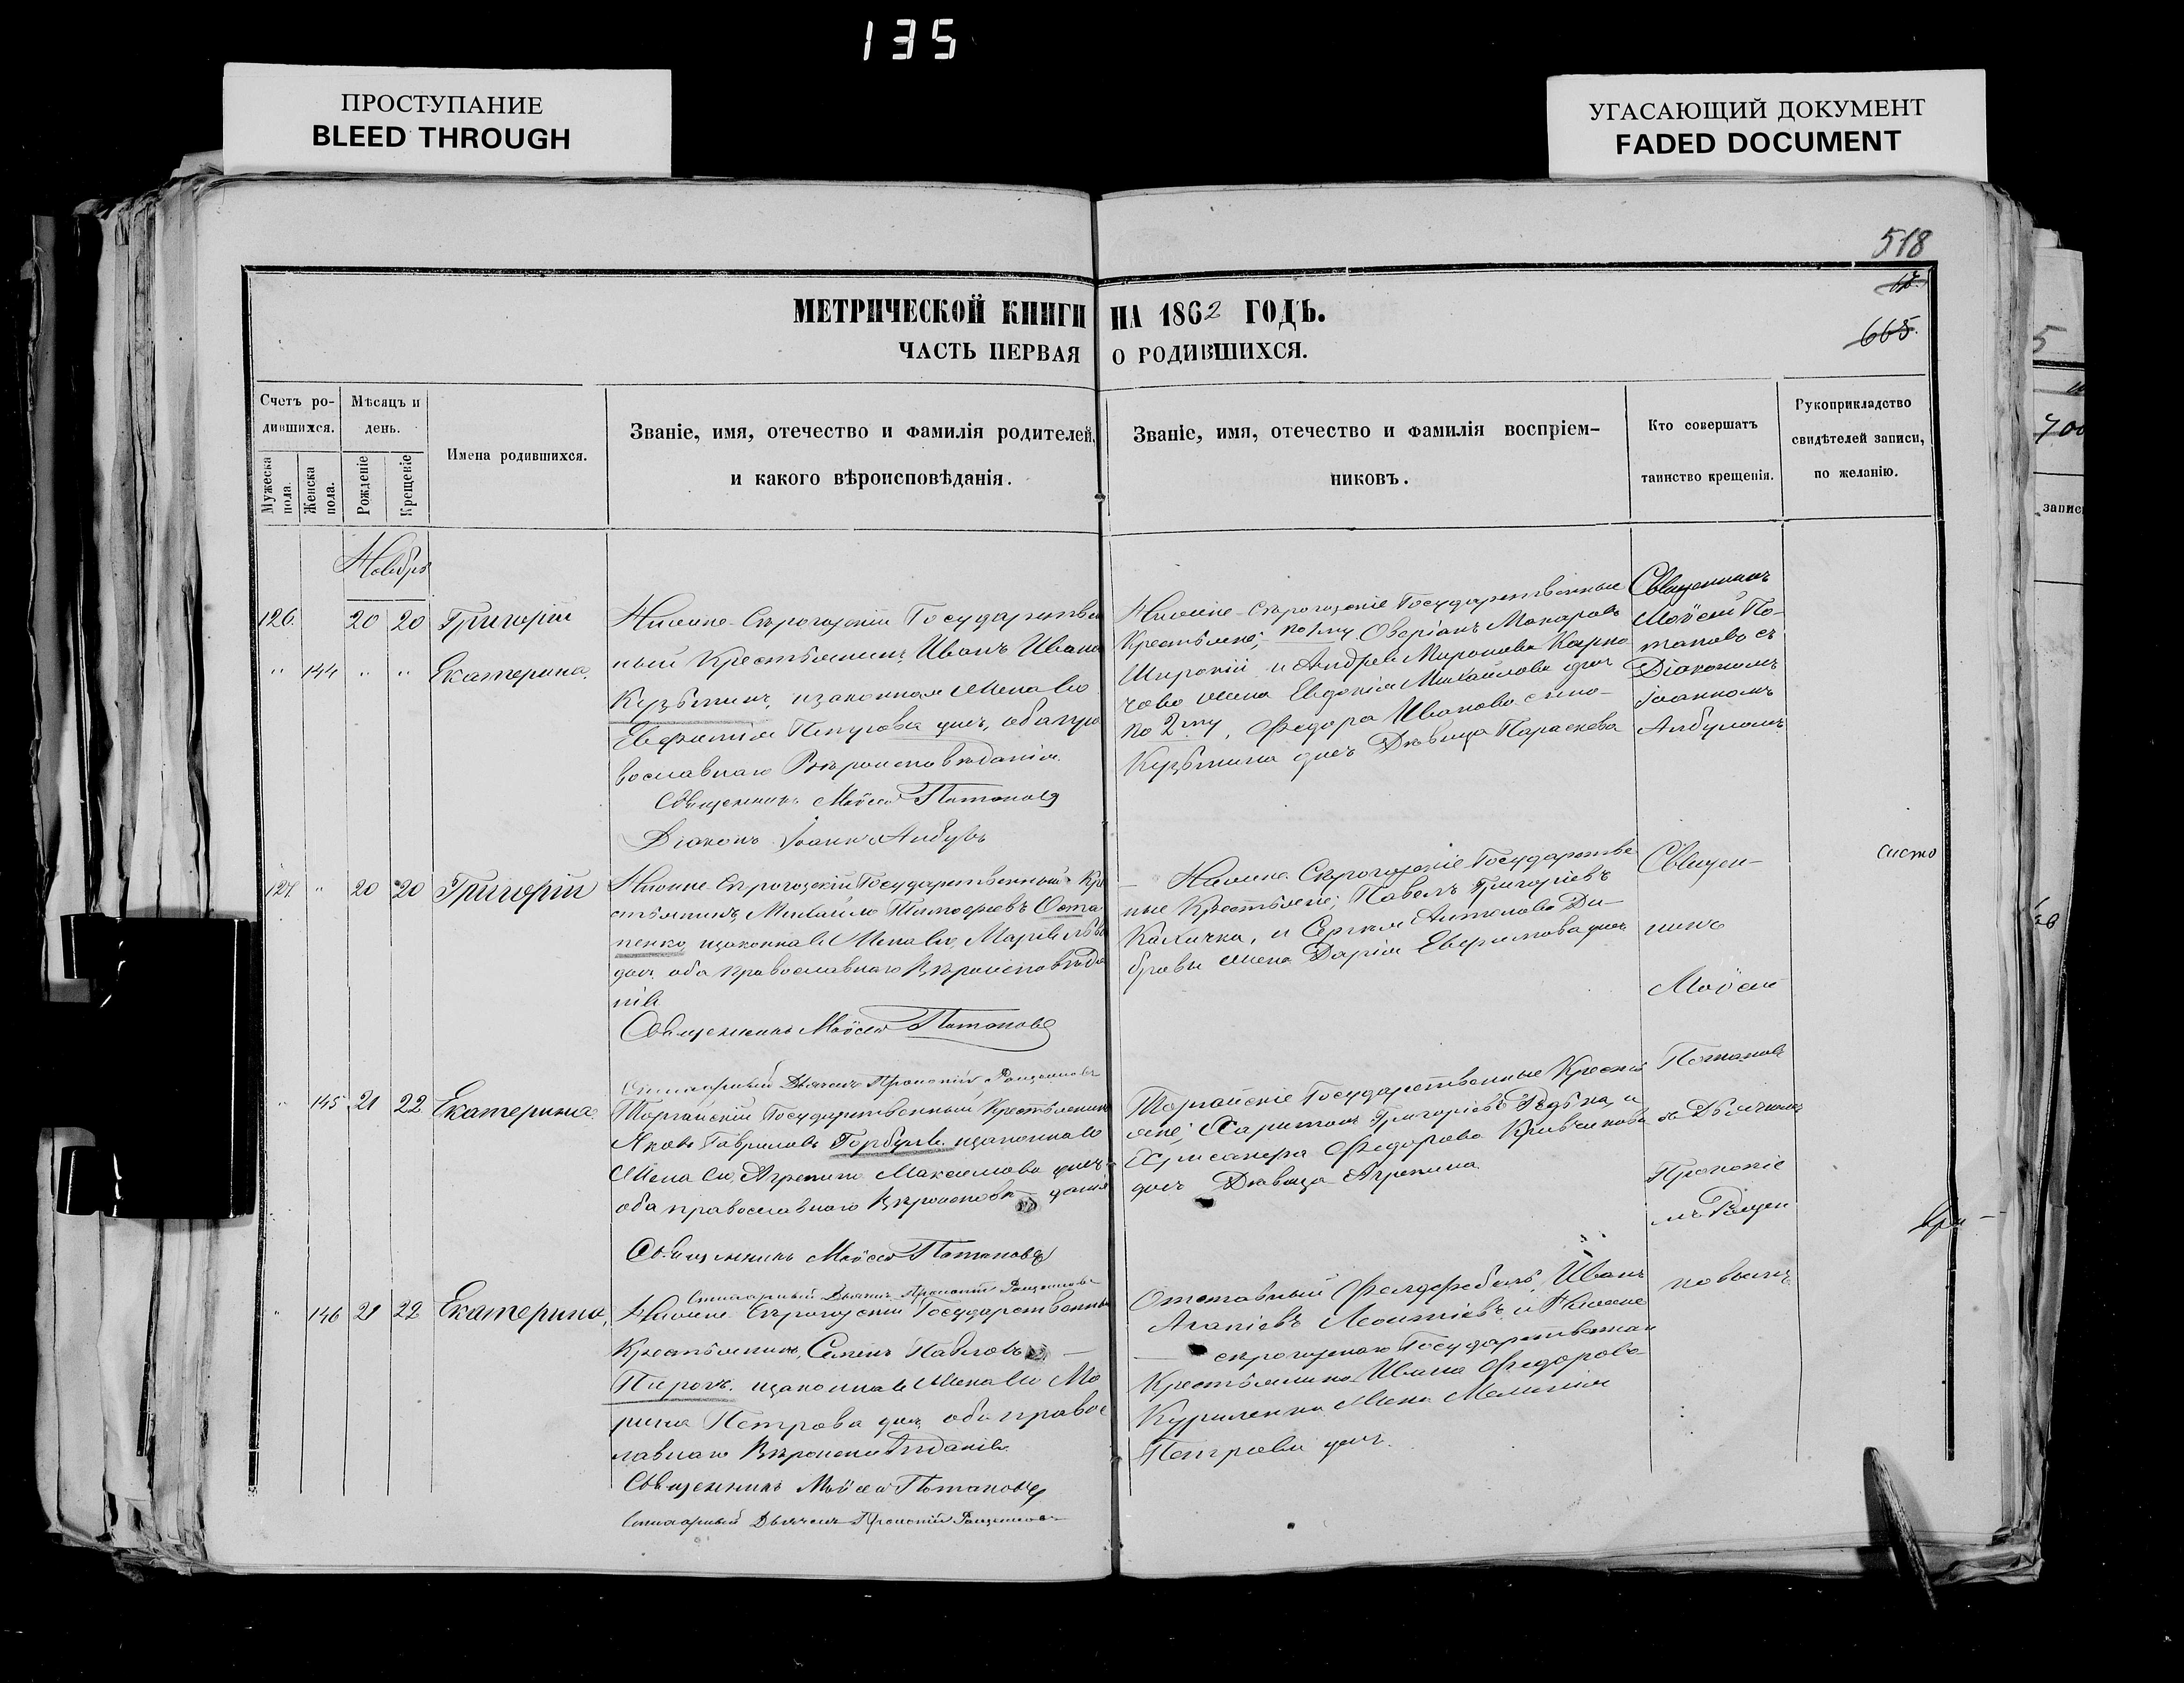 135
ПРОСТУПАНИЕ
BLEED THROUGH
УГАСАЮЩИЙ ДОКУМЕНТ
FADED DOCUMENT
518
665
МЕТРИЧЕСКОЙ КНИГИ НА 1862 ГОДЪ.
ЧАСТЬ ПЕРВАЯ О РОДИВШИХСЯ.
Счетъ ро-
дившихся.
Мужеска пола.
Женска пола.
Мѣсяцъ и
день.
Рожденіе
Крещеніе
Имена родившихся.
Званіе, имя, отечество и фамилія родителей,
и какого вѣроисповѣданія.
Званіе, имя, отечество и фамилія воспріем-
никовъ.
Кто совершатъ
таинство крещенія.
Рукоприкладство
свидѣтелей записи,
по желанію.
Ноября
126. 20 20 Григорій
" 144 " " Екатерина.
Нижне-Сѣрогозскій Государствен
ный Крестьянинъ Иванъ Ивано
Кузьминъ, и законная жена его
Евфимія дочь, оба пра
вославнаго Вѣроисповѣданія.
Священникъ Мойсей Потаповъ
Діаконъ Іоаннъ Албулъ
Нижне-Сѣрогозскіе Государственные
Крестьяне; по 1му Оверіанъ Макаровъ
Широкій и Андрея Миронова Карпо
чова жена Евдокія Михайлова дочь
по 2му, Федора Иванова сына
Кузьмина дочь Дѣвица Параскева
Священникъ
Мойсей По-
таповъ съ
Діакономъ
Іоанномъ
Албуломъ
127. " 20 20 Григорій
Нижне-Сѣрогозскій Государственный Кре
стьянинъ Михайло Тимофеевъ Оста
пенко, и законная жена его Марія
дочь оба православнаго Вѣроисповѣда
нія
Священникъ Мойсей Потаповъ
Нижне-Сѣрогозскіе Государстве
ные Крестьяне; Павелъ Григоріевъ
Какичка, и Сергѣя Антонова Ди-
бровы жена Дарія Евфимова дочь
Священ-
никъ
Мойсей
Потаповъ
съ Дьячкомъ
Прокопіе
мъ Рощен
ковымъ
систо
" 145 21 22 Екатерина.
Дьячекъ Прокопій Рощенковъ
Торгайскій Государственный Крестьянинъ
Яковъ Гавриловъ Горбуль и законная его
жена его Агрепина Максимова дочь
оба православнаго Вѣроисповѣданія
Священникъ Мойсей Потаповъ
Дьячекъ Прокопій Рощенковъ
Торгайскіе Государственные Кресть
яне; Харитонъ Григоріевъ Рѣдька, и
Федорова Кривчикова
дочь Дѣвица Агрепина
" 146 21 22 Екатерина,
Нижне-Сѣрогозскій Государственный
Крестьянинъ, Семенъ Павловъ
Пирогъ. и законная жена его Ма
рина Петрова дочь оба правос
лавнаго Вѣроисповѣданія
Священникъ Мойсей Потаповъ
Дьячекъ Прокопій Рощенковъ
Отставный Фелдфебель, Иванъ
Агапіевъ Леонтіевъ, и Нижне
сѣрогозскаго Государственнаго
Крестьянина Ивана Федорова
Куриленка жена Меланія
Петрова дочь.